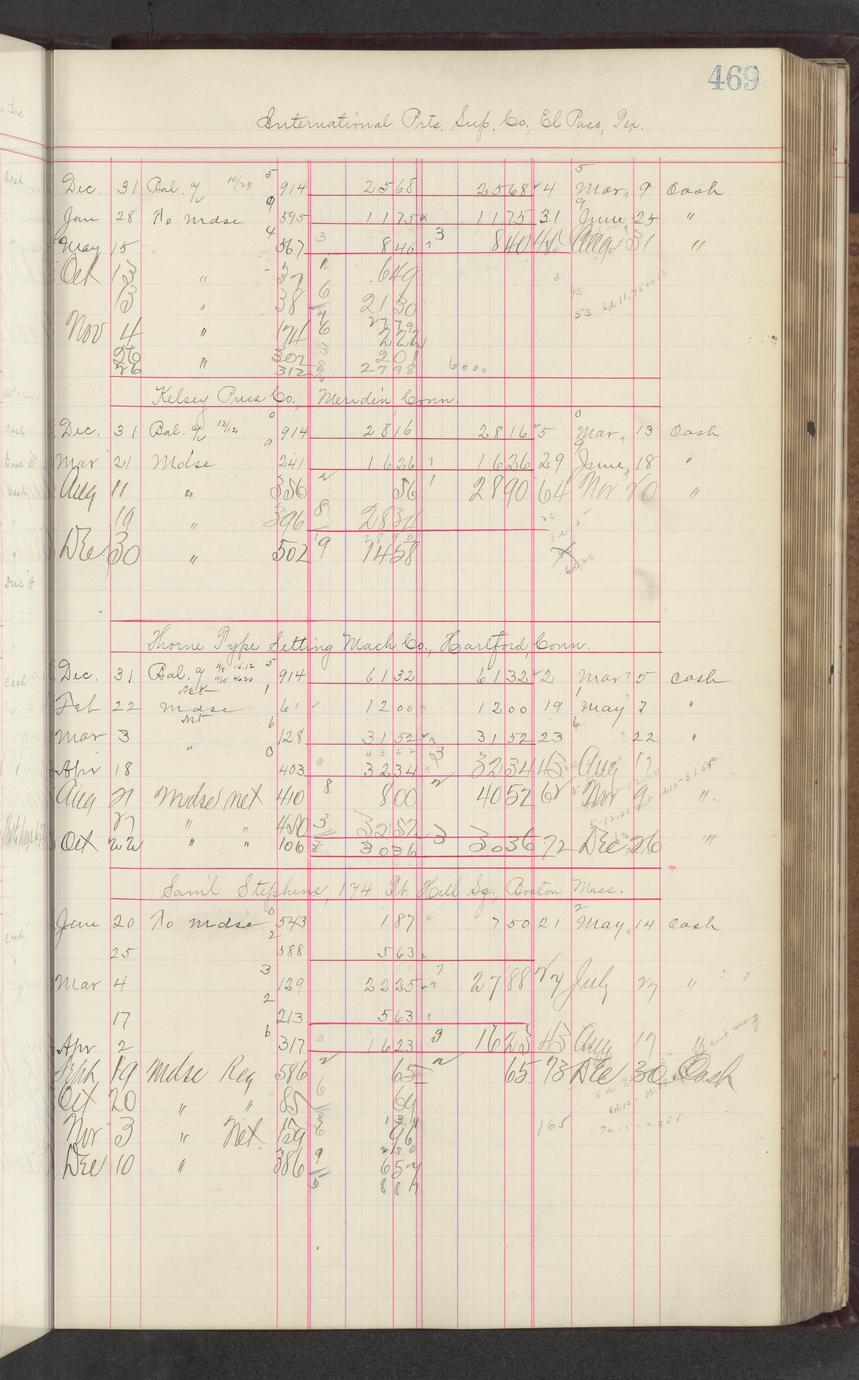 469
International Prts. Sup. Co., El Paso, Tex.
Dec. 31 Bal. 10/29 914 2568 2568 4 Mar. 9 Cash
Jan 28 To mdse 595 1175 1175 31 June 25 "
May 15 567 840 840 Aug 31 "
Oct 13 " 37 649
13 " 38 2130
Nov 4 " 174 222
26 " 302 201
26 312 2798 6000
Kelsey Press Co., Meriden Conn.
Dec. 31 Bal. 12/12 914 2816 2816 5 Mar. 13 Cash
Mar 21 Mdse 241 1626 1626 29 June 18 "
Aug 11 " 356 56 2890 64 Nov 20 "
19 " 396 2834
Dec 30 " 502 1458
Thorne Type Setting Mach Co., Hartford, Conn.
Dec. 31 Bal. 914 6132 6132 2 Mar 5 Cash
Feb 22 mdse Net 61 1200 1200 19 May 7 "
Mar 3 " Net 128 3152 3152 23 " 22 "
Apr 18 403 3234 3234 43 Aug 17
Aug 21 Mdse net 410 800 4052 62 Nov 9 "
27 " " 420 3252
Oct 22 " " 106 3036 3036 72 Dec 26 "
Saml Stephens, 174 Ft Hill Sq., Boston Mass.
Jan 20 To mdse 543 187 750 21 May 14 Cash
25 588 563
Mar 4 129 2225 2788 July 27 "
17 213 563
Apr 2 317 1623 1623 43 Aug 17 "
Sept 19 Mdse Reg 586 65 65 73 Dec 30 Cash
Oct 20 " " 85 69
Nov 3 " Net 159 96
Dec 10 " 386 657
887